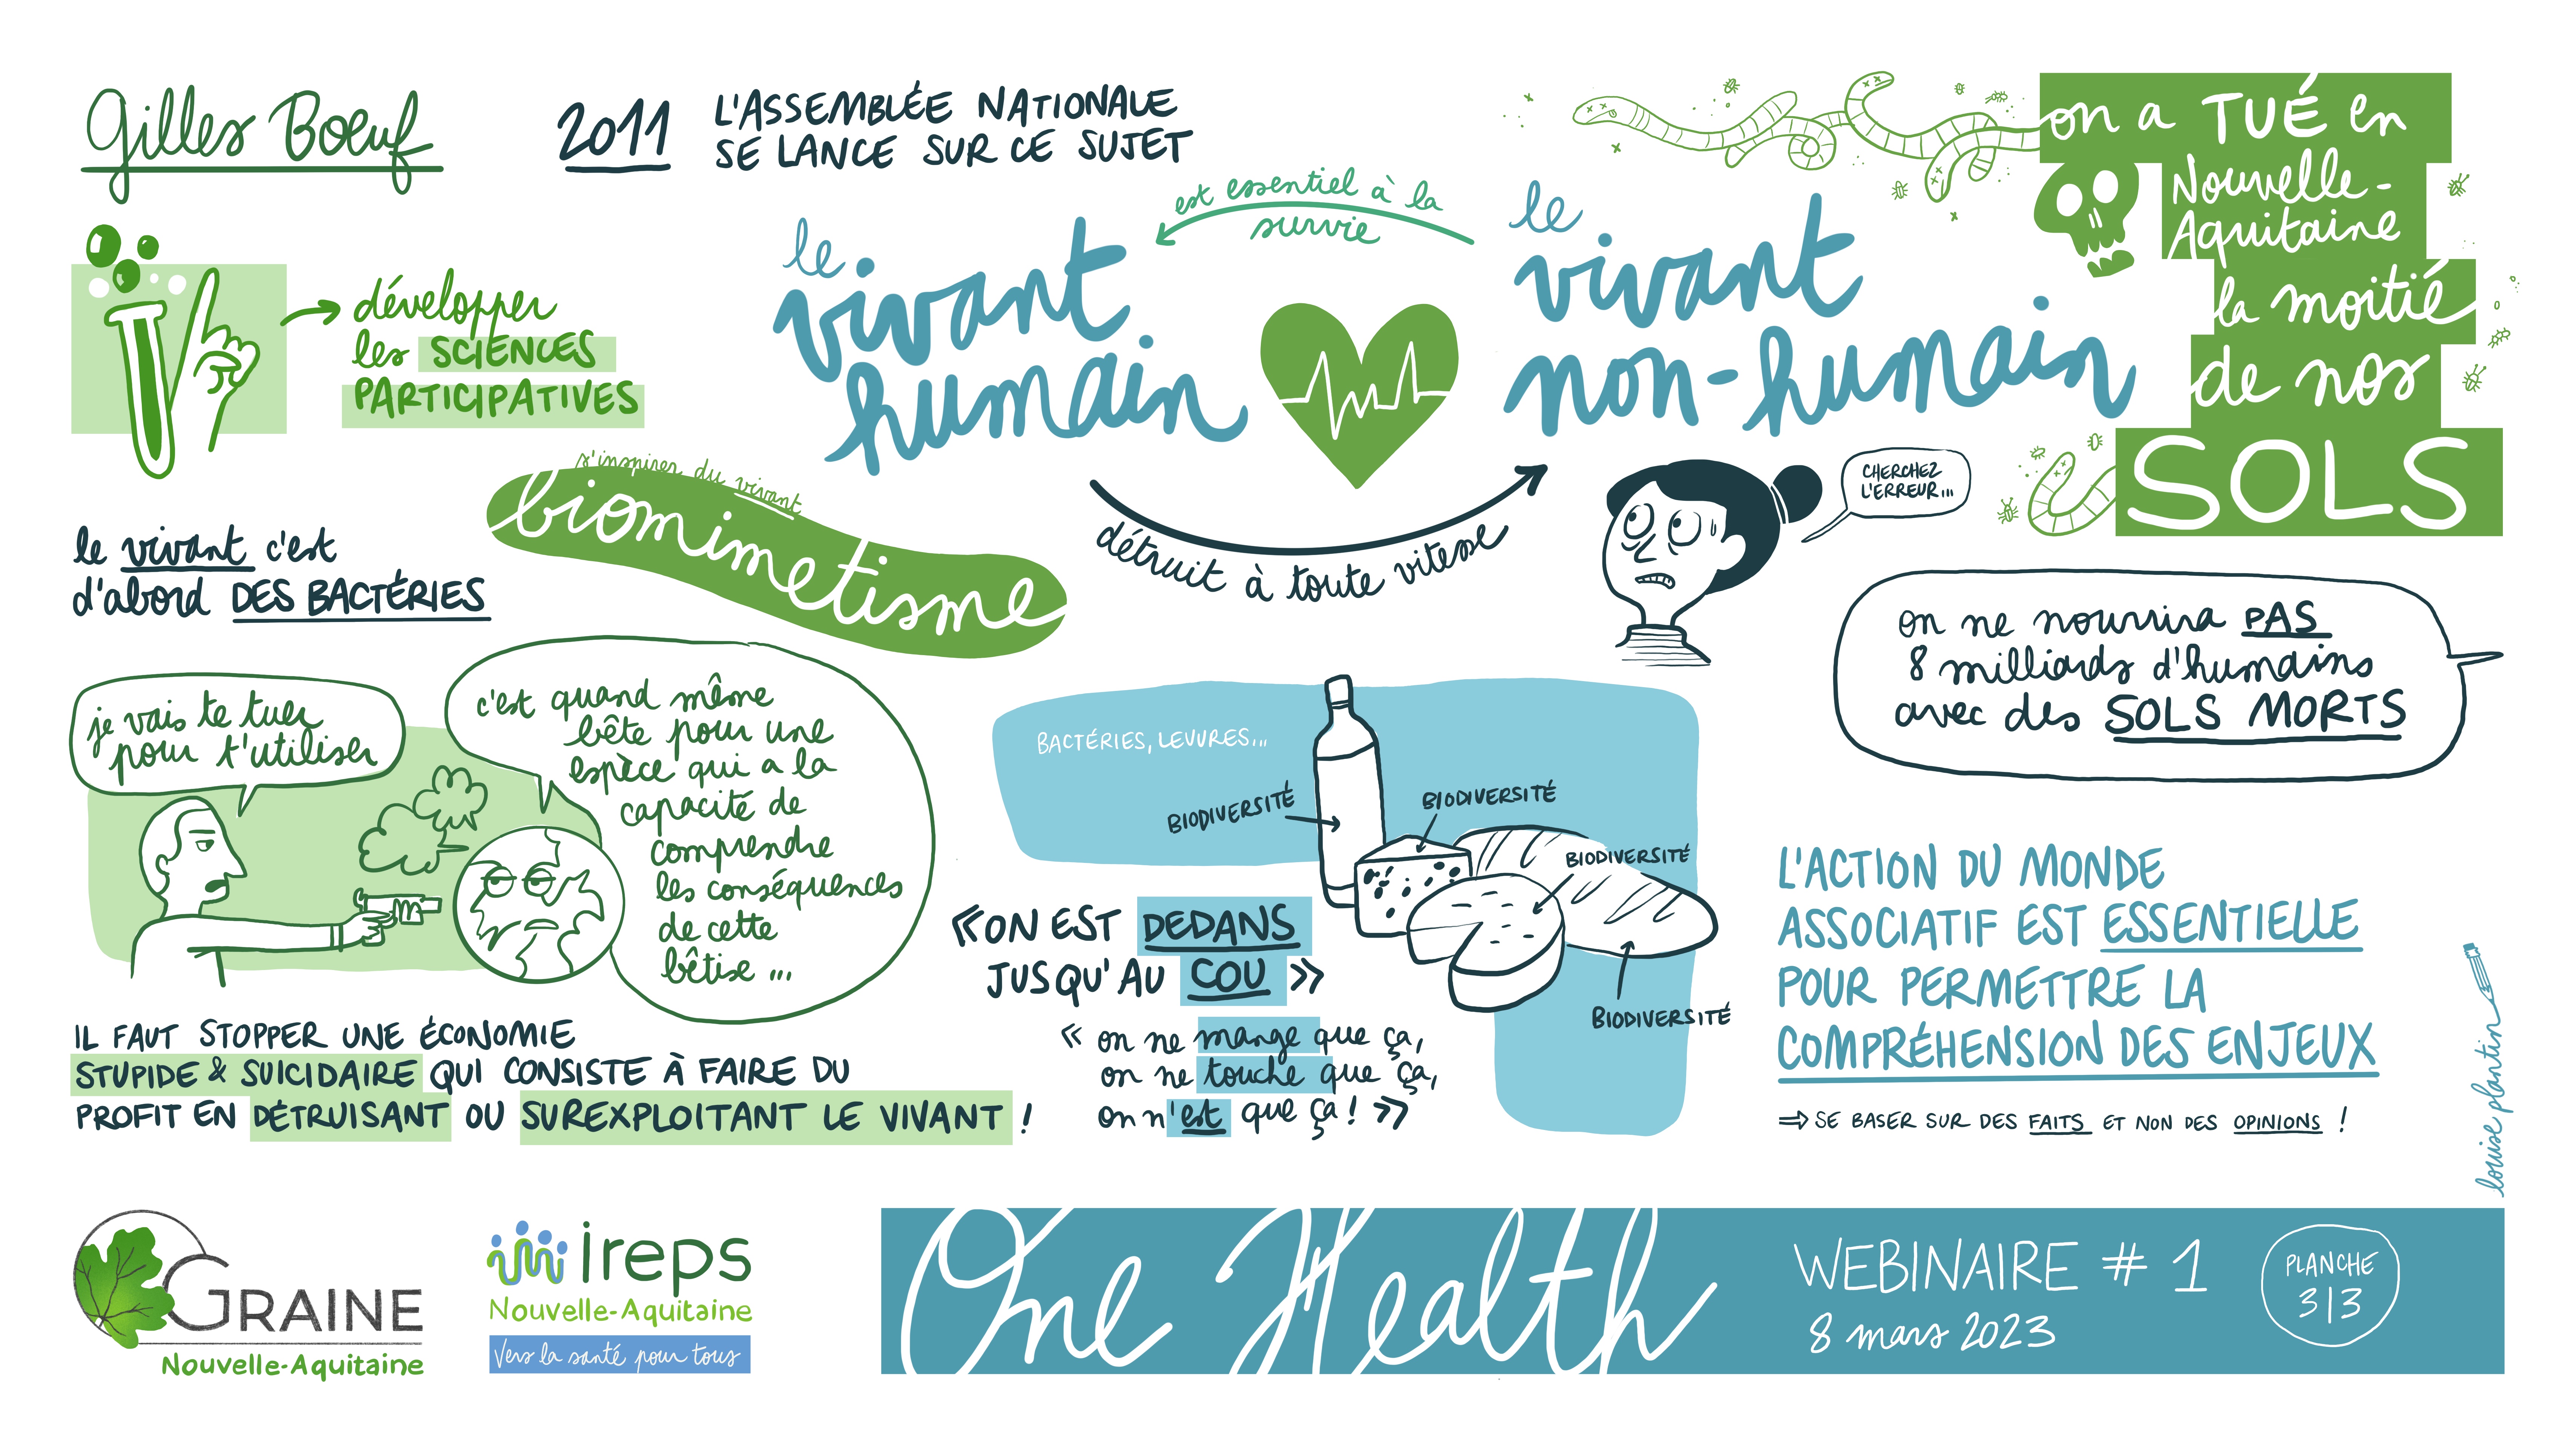 Gilles Bœuf
2011
L'ASSEMBLÉE NATIONALE
SE LANCE SUR CE SUJET
développer
les SCIENCES
PARTICIPATIVES
le
vivant
humain
est essentiel à la
survie
le
vivant
non-humain
détruit à toute vitesse
on a TUÉ en
Nouvelle-
Aquitaine
la moitié
de nos
SOLS
CHERCHEZ
L'ERREUR...
s'inspirer du vivant
biomimetisme
le vivant c'est
d'abord DES BACTÉRIES
je vais te tuer
pour t'utiliser
c'est quand même
bête pour une
espèce qui a la
capacité de
comprendre
les conséquences
de cette
bêtise ...
IL FAUT STOPPER UNE ÉCONOMIE
STUPIDE & SUICIDAIRE QUI CONSISTE À FAIRE DU
PROFIT EN DÉTRUISANT OU SUREXPLOITANT LE VIVANT !
BACTÉRIES, LEVURES...
BIODIVERSITÉ
BIODIVERSITÉ
BIODIVERSITÉ
BIODIVERSITÉ
« ON EST DEDANS
JUSQU'AU COU »
« on ne mange que ça,
on ne touche que ça,
on n'est que ça ! »
on ne nourrira PAS
8 milliards d'humains
avec des SOLS MORTS
L'ACTION DU MONDE
ASSOCIATIF EST ESSENTIELLE
POUR PERMETTRE LA
COMPRÉHENSION DES ENJEUX
⇒ SE BASER SUR DES FAITS ET NON DES OPINIONS !
louise plantin
GRAINE
Nouvelle-Aquitaine
ireps
Nouvelle-Aquitaine
Vers la santé pour tous
One Health
WEBINAIRE # 1
8 mars 2023
PLANCHE
3|3